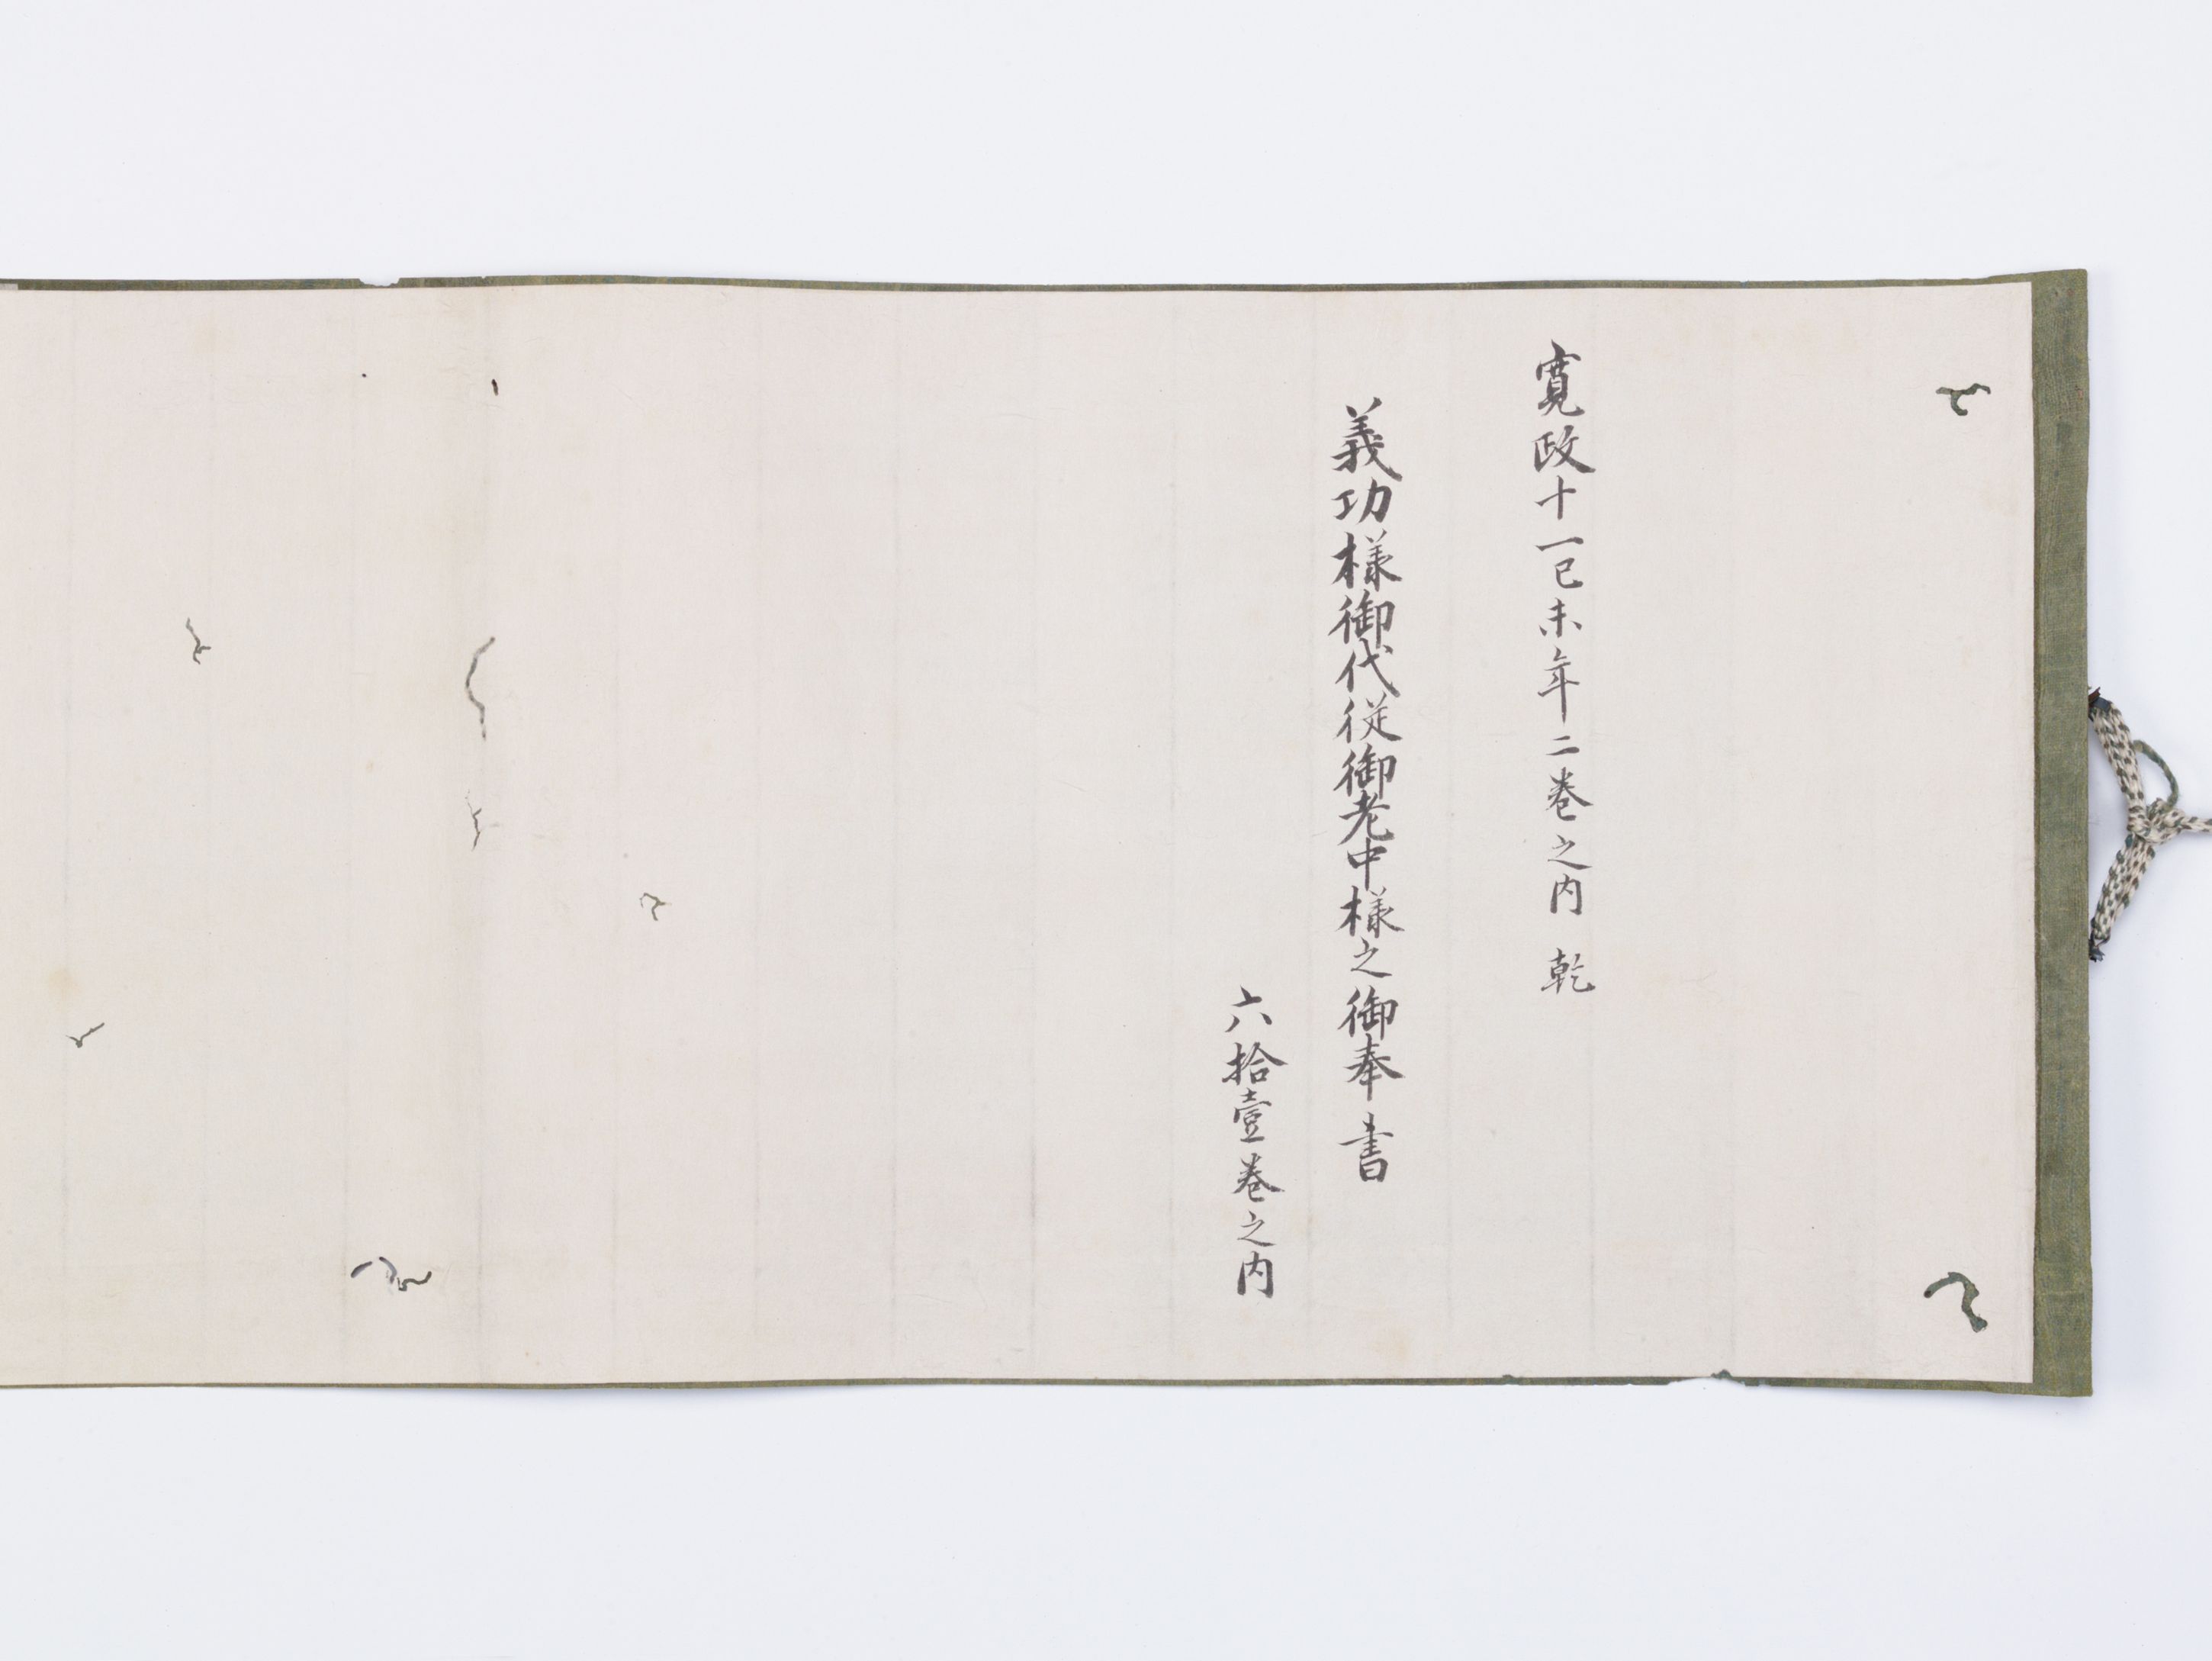 寛政十一己未年二巻之内　乾
義功様御代従御老中様之御奉書
六拾壹巻之内